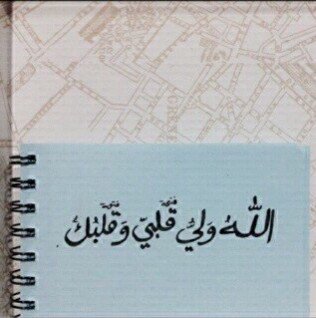 اللهُ وَليُّ قَلبيّ وَقَلبُك